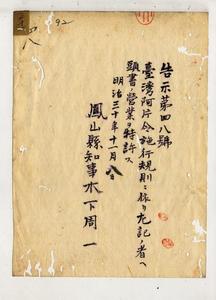 告示第四八號
臺灣阿片令施行規則ニ依リ左記ノ者ヘ
頭書ノ營業ヲ特許ス
明治三十年十一月八日
鳳山縣知事木下周一
92